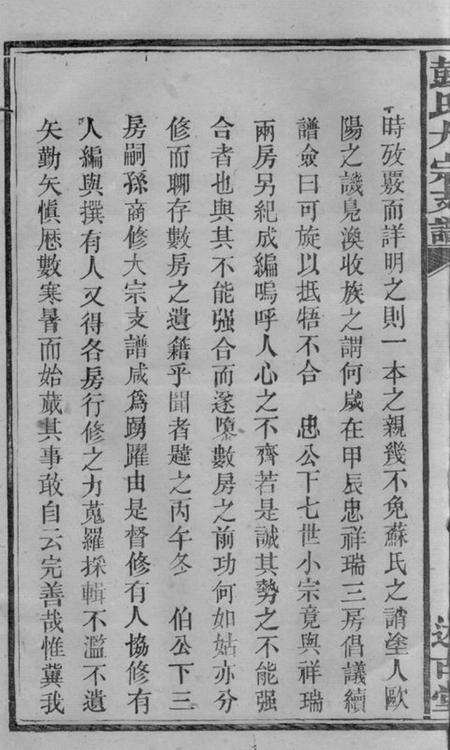 彭氏大宗支譜
述古堂
時攷覈而詳明之則一本之親幾不免蘇氏之誚塗人歐
陽之譏見渙收族之謂何歲在甲辰忠祥瑞三房倡議續
譜僉曰可旋以抵牾不合　忠公下七世小宗竟與祥瑞
兩房另紀成編嗚呼人心之不齊若是誠其勢之不能强
合者也與其不能强合而遂墮數房之前功何如姑亦分
修而聊存數房之遺籍乎聞者韙之丙午冬　伯公下三
房嗣孫商修大宗支譜咸爲踴躍由是督修有人協修有
人編與撰有人又得各房行修之力蒐羅採輯不濫不遺
矢勤矢愼厯數寒暑而始蕆其事敢自云完善哉惟冀我